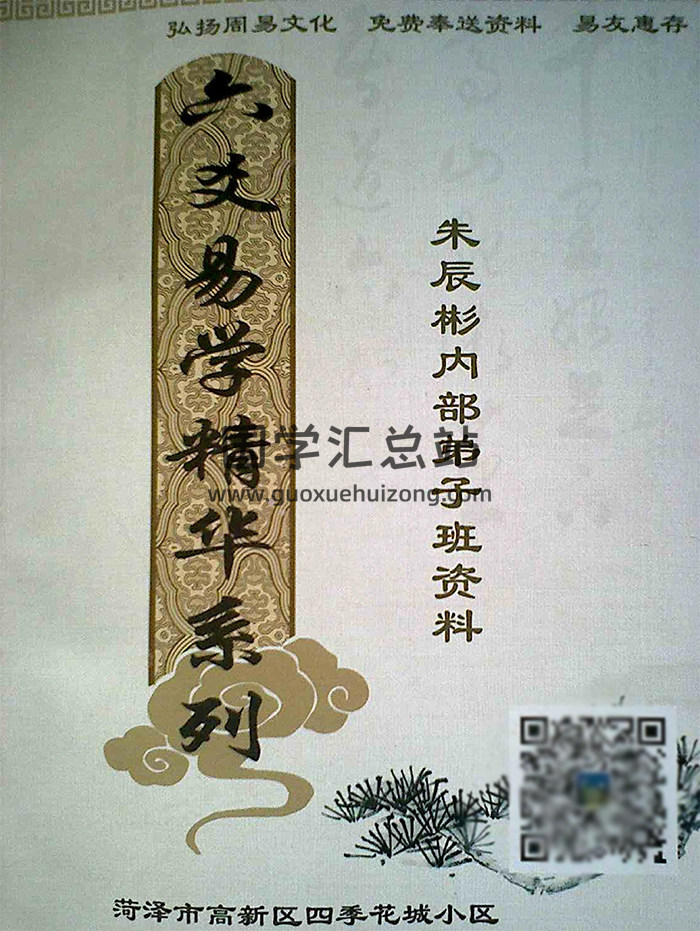 弘扬周易文化 免费奉送资料 易友惠存
六爻易学精华系列
朱辰彬内部弟子班资料
国学汇总站
www.guoxuehuizong.com
菏泽市高新区四季花城小区